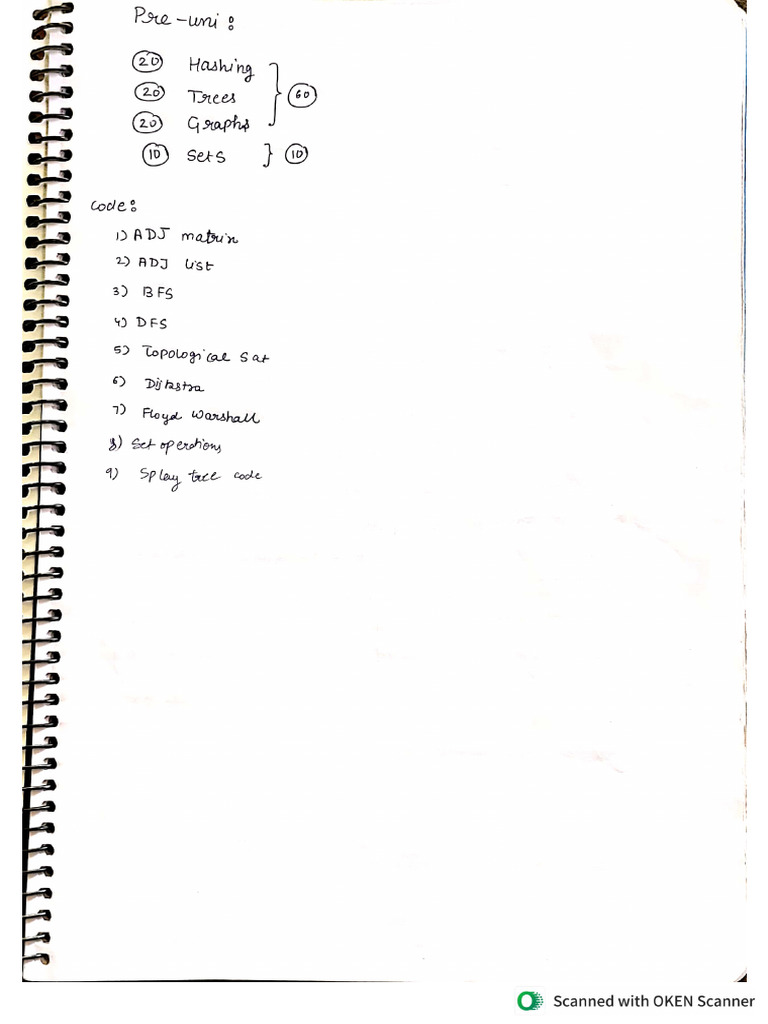 Pre-uni:
20 Hashing
20 Trees 60
20 Graphs
10 Sets 10
Code:
1) ADJ matrix
2) ADJ list
3) BFS
4) DFS
5) Topological Sort
6) Dijkstra
7) Floyd Warshall
8) Set operations
9) Splay tree code
Scanned with OKEN Scanner